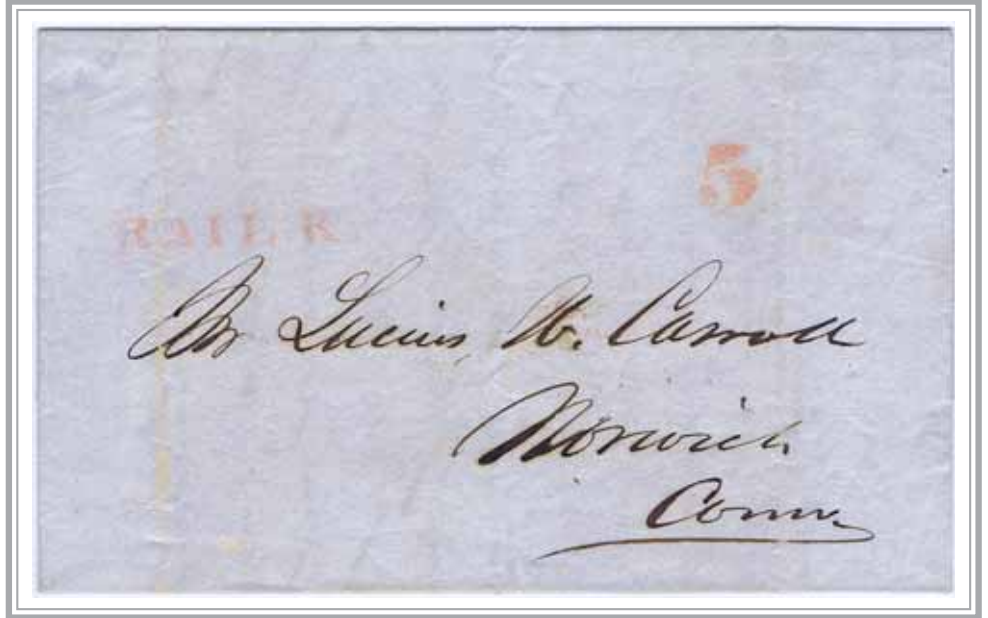 5
RAIL R
Mr Lucius W. Carroll
Norwich
Conn.